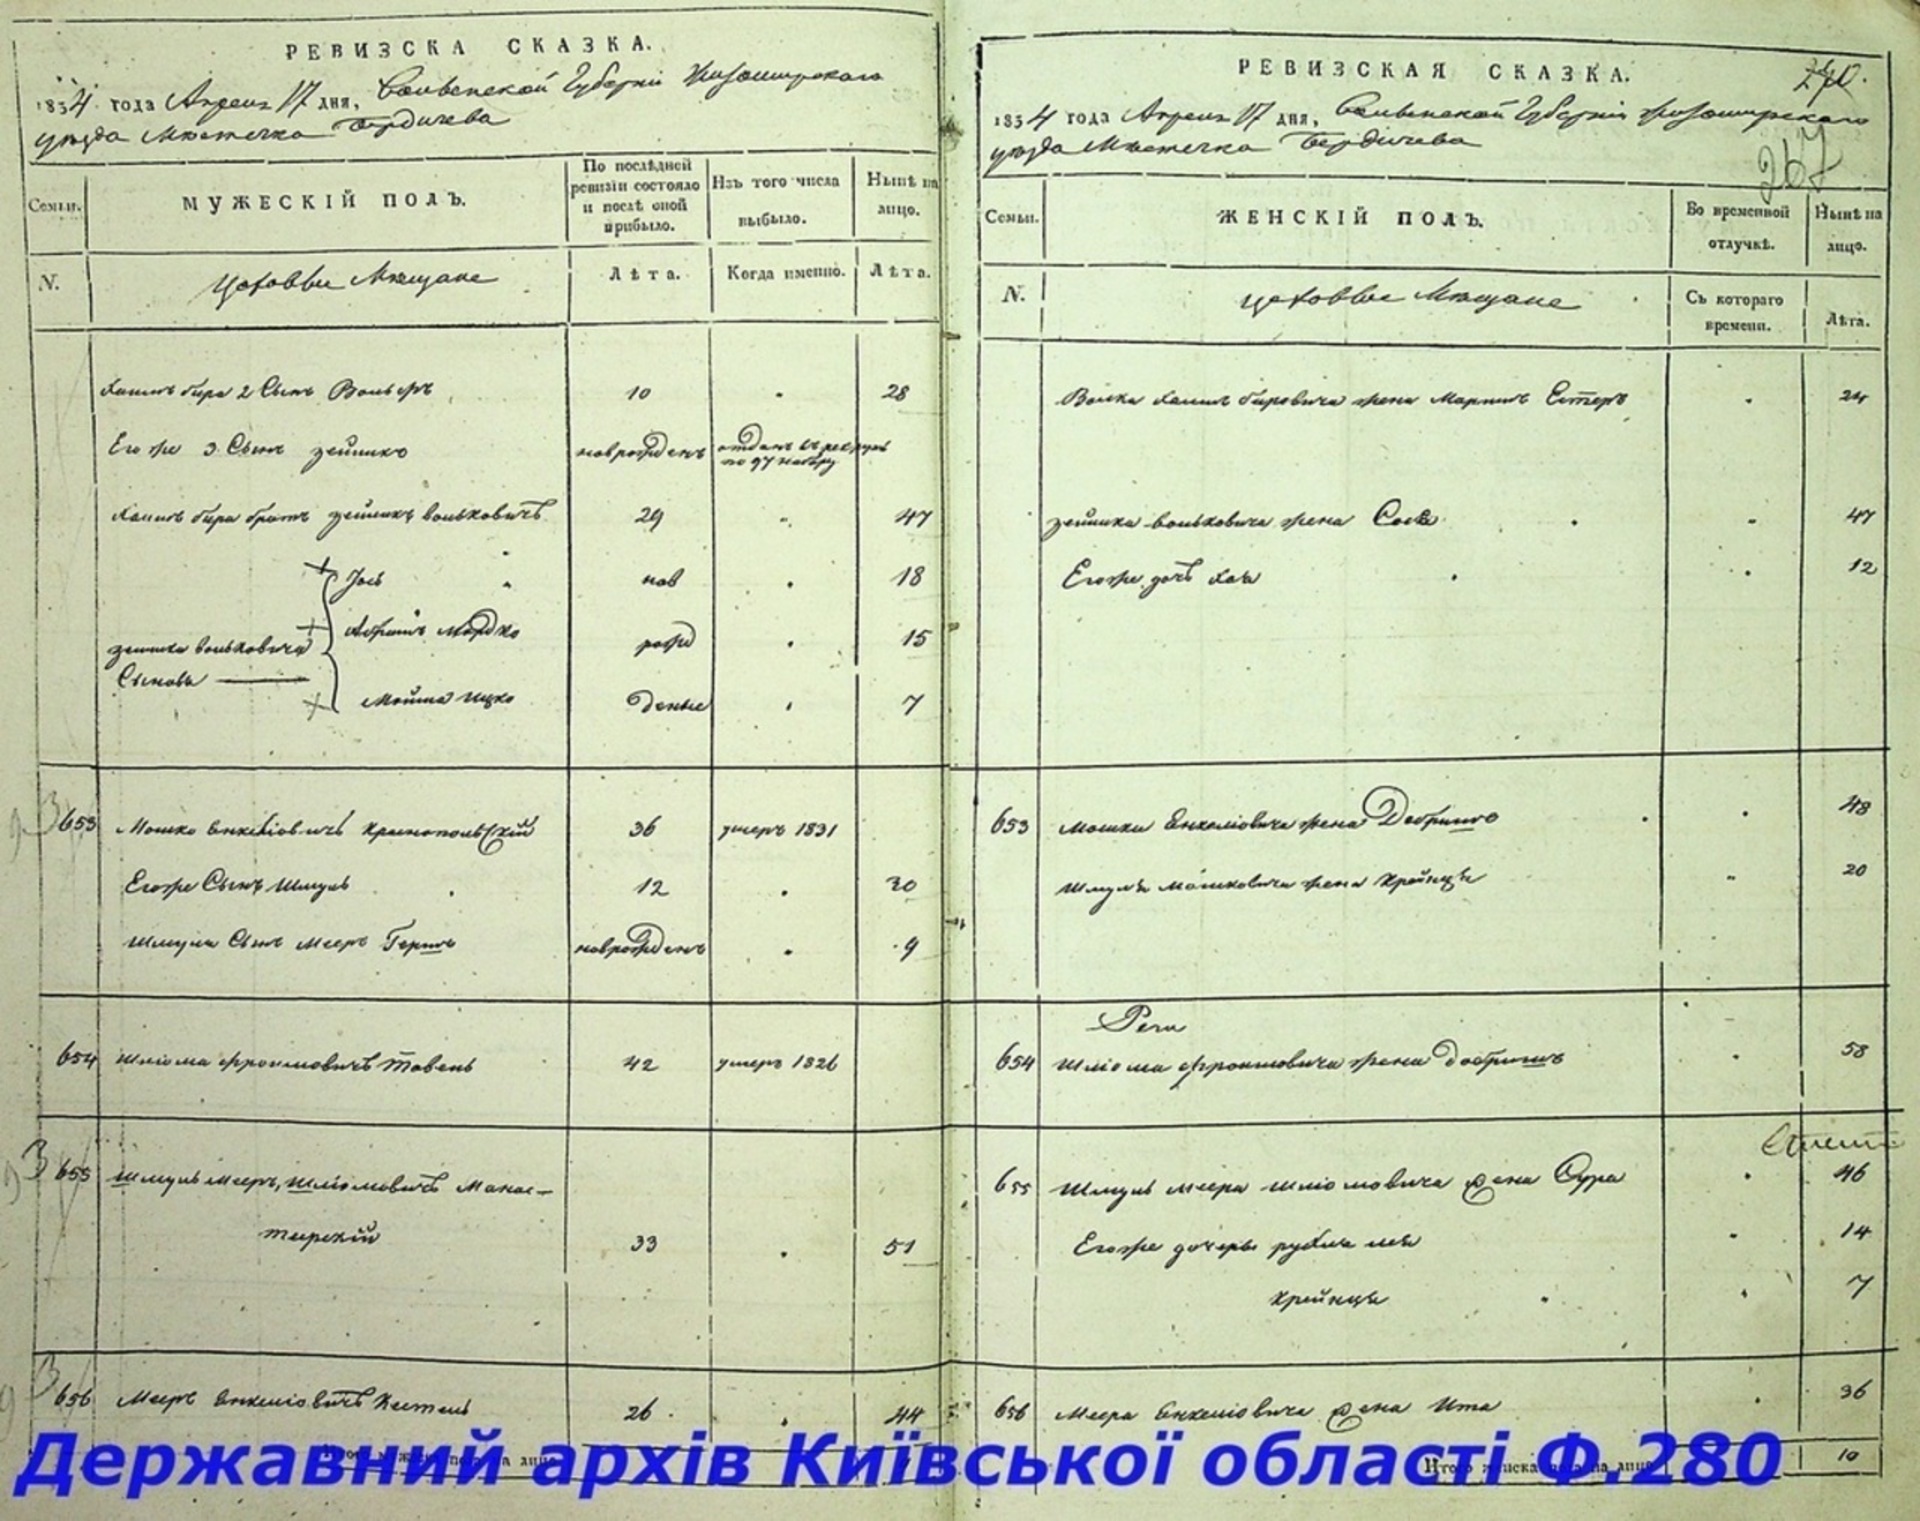 РЕВИЗСКА СКАЗКА.
1834 года Апреля 17 дня, Волынской Губернии Житомирского
уезда Местечка Бердичева
Семьи.
МУЖЕСКІЙ ПОЛЪ.
По послѣдней ревизіи состояло и послѣ оной прибыло.
Изъ того числа выбыло.
Нынѣ на лицо.
N.
Цеховые Мещане
Лѣта.
Когда именно.
Лѣта.
2 Сынъ Вольфъ 10 28
Его же 3 Сынъ Зейлико новорожденъ отданъ въ рекруты
по 97 набору
братъ Зейликъ Вольковичъ 29 47
Іось нов 18
Абрамъ Мордко рож 15
Зейлика Вольковича
Сыновья
Мойша Ицко денные 7
653 Мошко Янкеліовичъ Краснопольскій 36 умеръ 1831
Его же Сынъ Шмуль 12 30
Шмуля Сынъ Мееръ Гершъ новорожденъ 9
654 Шліома Фроимовичъ 42 умеръ 1826
655 Шмуль Мееръ Шліомовичъ Манас-
терскій 33 51
656 Мееръ Янкеліовичъ 26 44
РЕВИЗСКАЯ СКАЗКА.
270.
1834 года Апреля 17 дня, Волынской Губерніи Житомирского
уезда Местечка Бердичева
267
Семьи.
ЖЕНСКІЙ ПОЛЪ.
Во временной отлучкѣ.
Нынѣ на лицо.
N.
Цеховые Мещане
Съ котораго времени.
Лѣта.
жена Естеръ 24
Зейлика Вольковича жена Сося 47
Его же дочь Хая 12
653 Мошки Янкеліовича жена Добришъ 48
Шмуля Мошковича жена Крейнця 20
654 Шліома Фроимовича жена Добришъ 58
655 Шмуль Меера Шліомовича жена Сура 46
Его же дочеры 14
Крейнця 7
656 Меера Янкеліовича жена Ита 36
Итого женска пола на лицо 10
Державний архів Київської області Ф.280